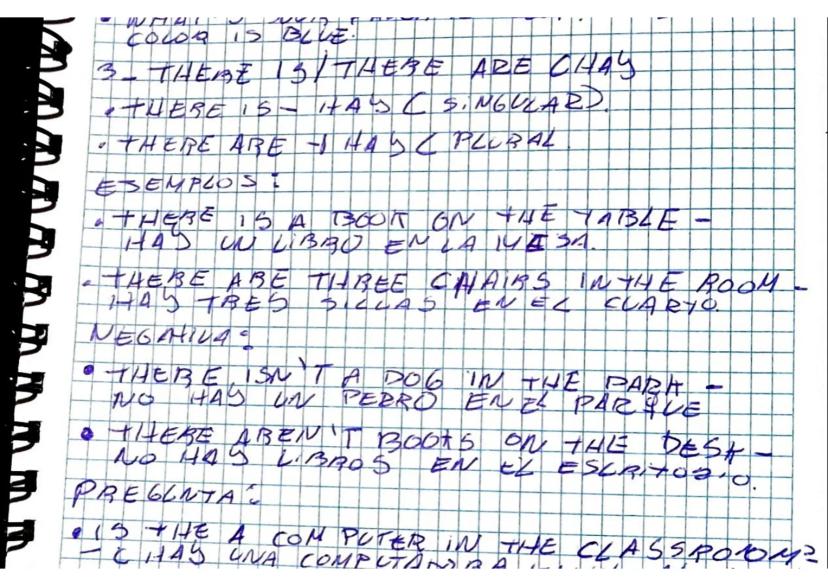 COLOR IS BLUE.
3- THERE IS/THERE ARE (HAY
• THERE IS - HAY ( SINGULAR).
• THERE ARE → HAY ( PLURAL
EJEMPLOS:
• THERE IS A BOOK ON THE TABLE -
HAY UN LIBRO EN LA MESA.
• THERE ARE THREE CHAIRS IN THE ROOM -
HAY TRES SILLAS EN EL CUARTO.
NEGATIVA:
• THERE ISN'T A DOG IN THE PARK -
NO HAY UN PERRO EN EL PARQUE
• THERE AREN'T BOOKS ON THE DESK -
NO HAY LIBROS EN EL ESCRITORIO.
PREGUNTA:
• IS THE A COMPUTER IN THE CLASSROOM?
- ¿ HAY UNA COMPUTADORA